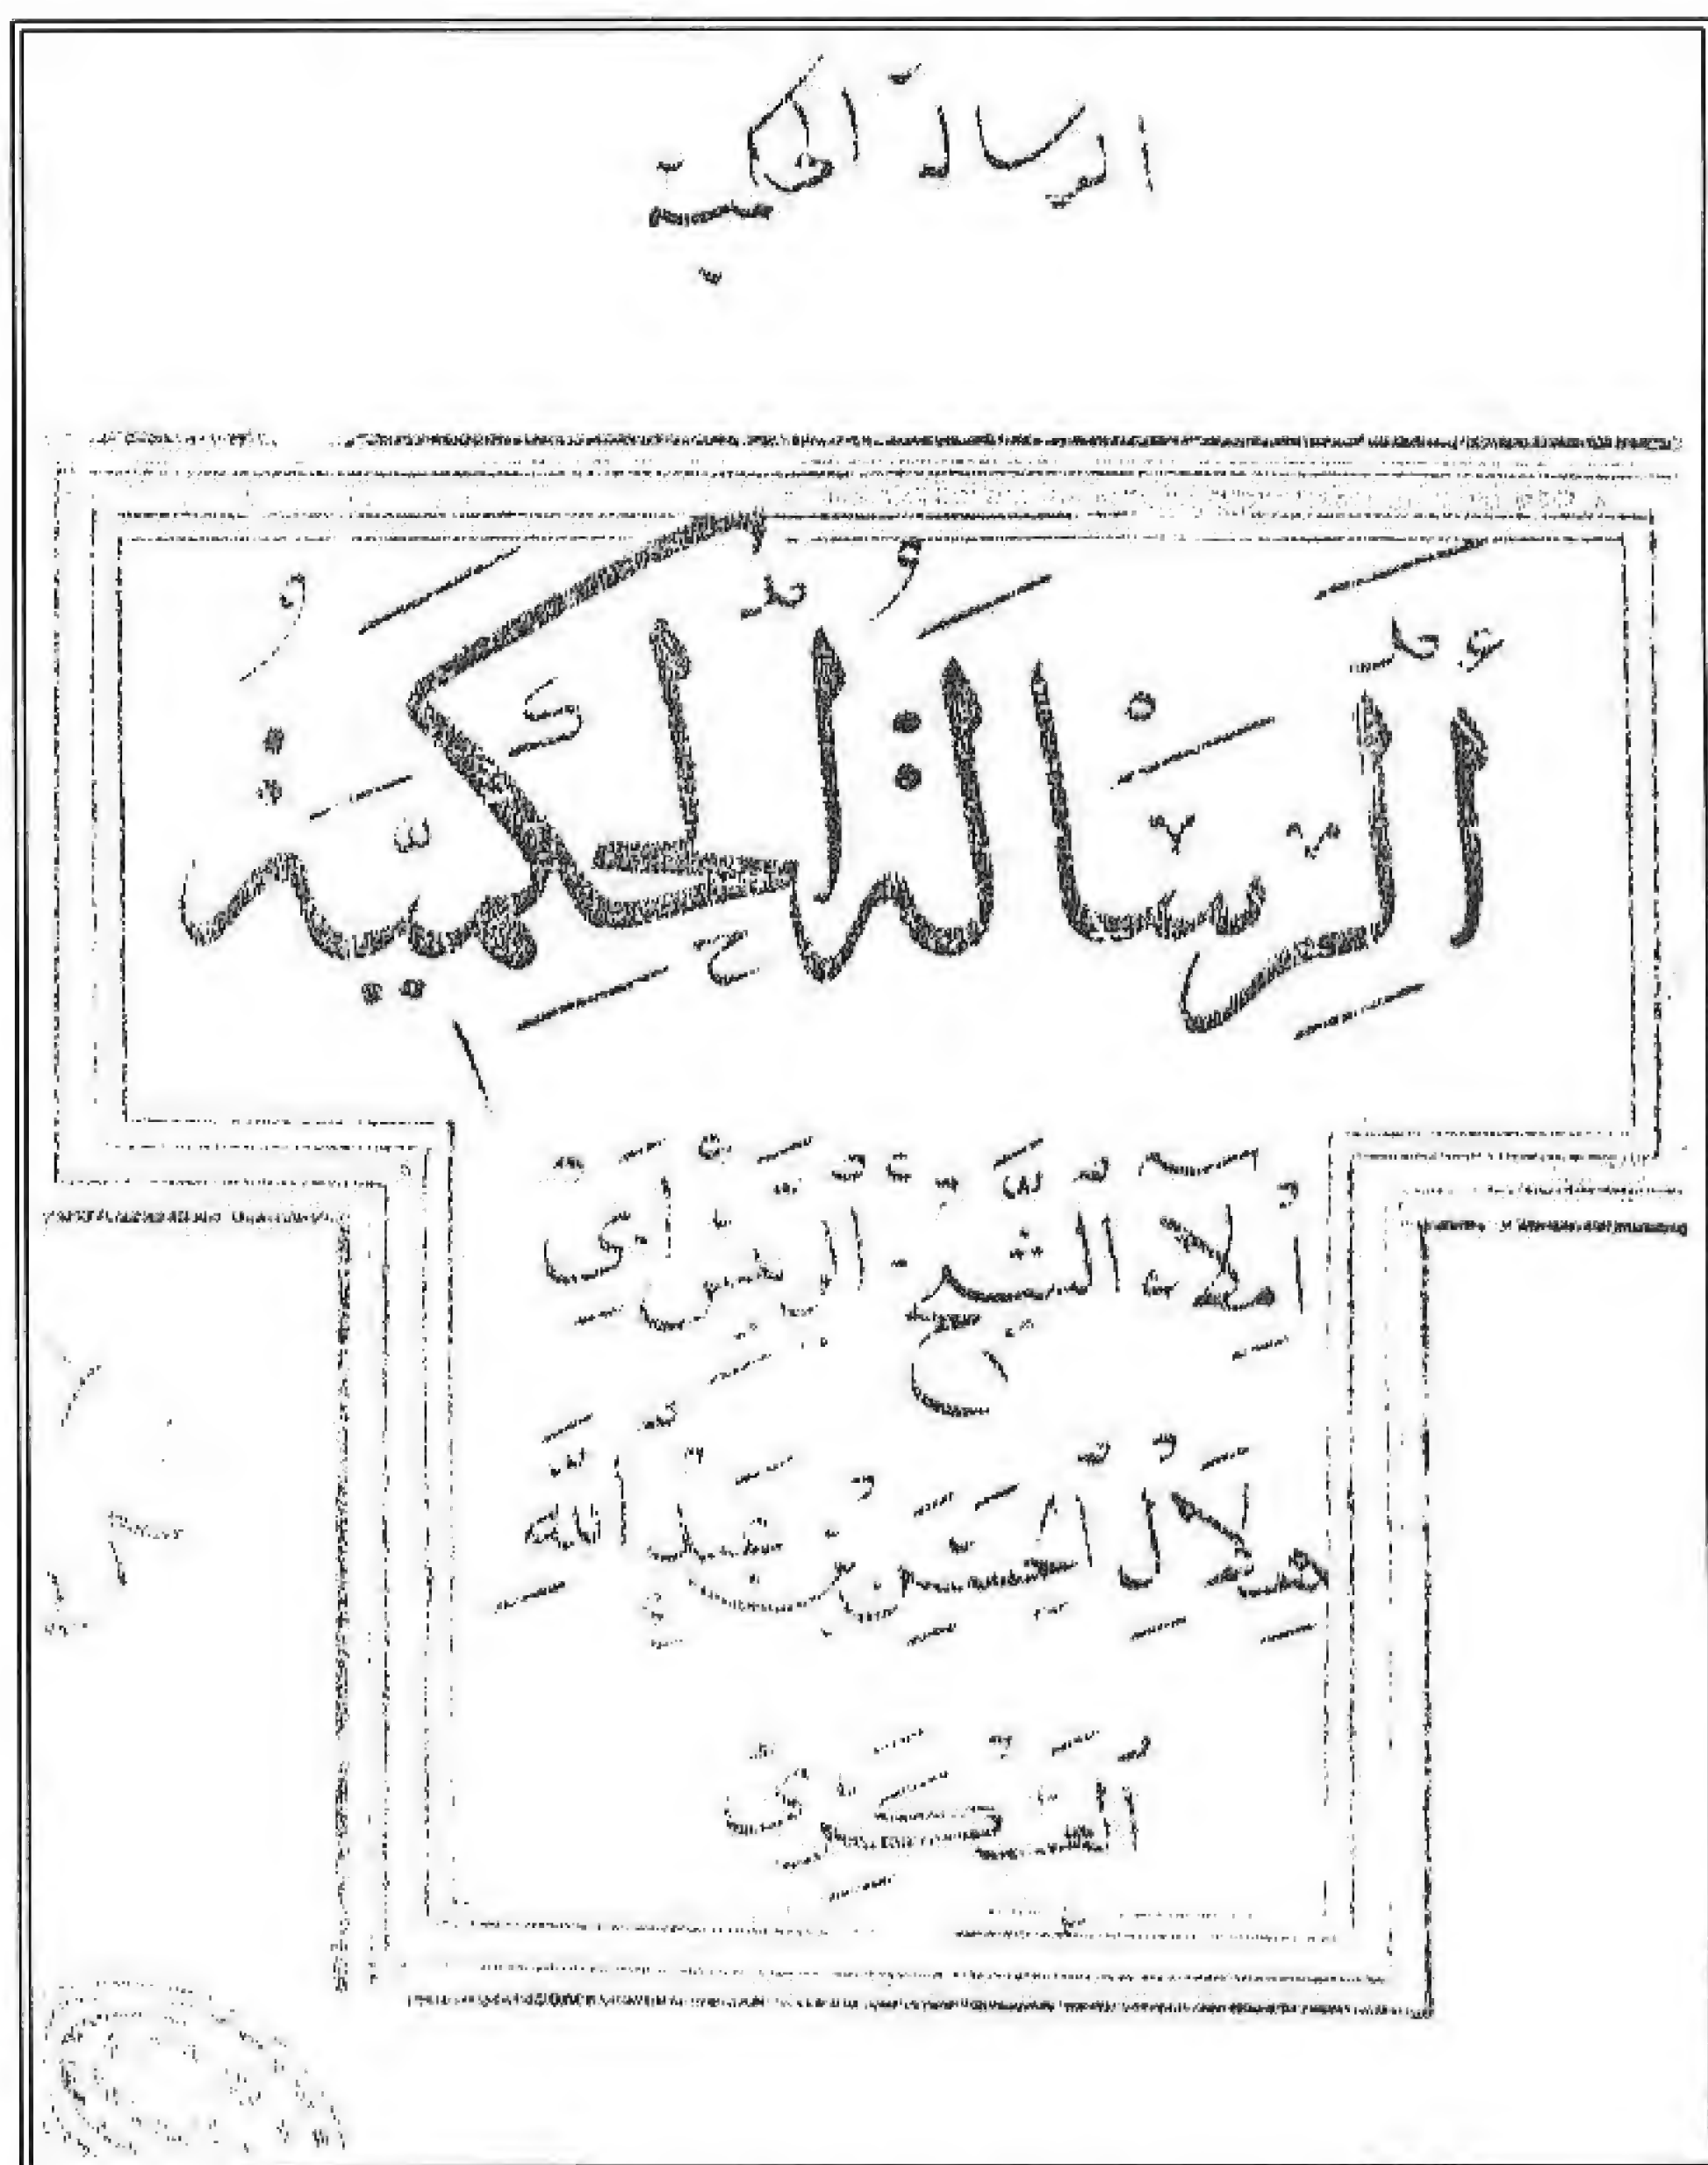 الرسالة الحكمية
الرسالة الحكمية
أملاء الشيخ الرئيس أبي
هلال الحسن بن عبد الله
العسكري